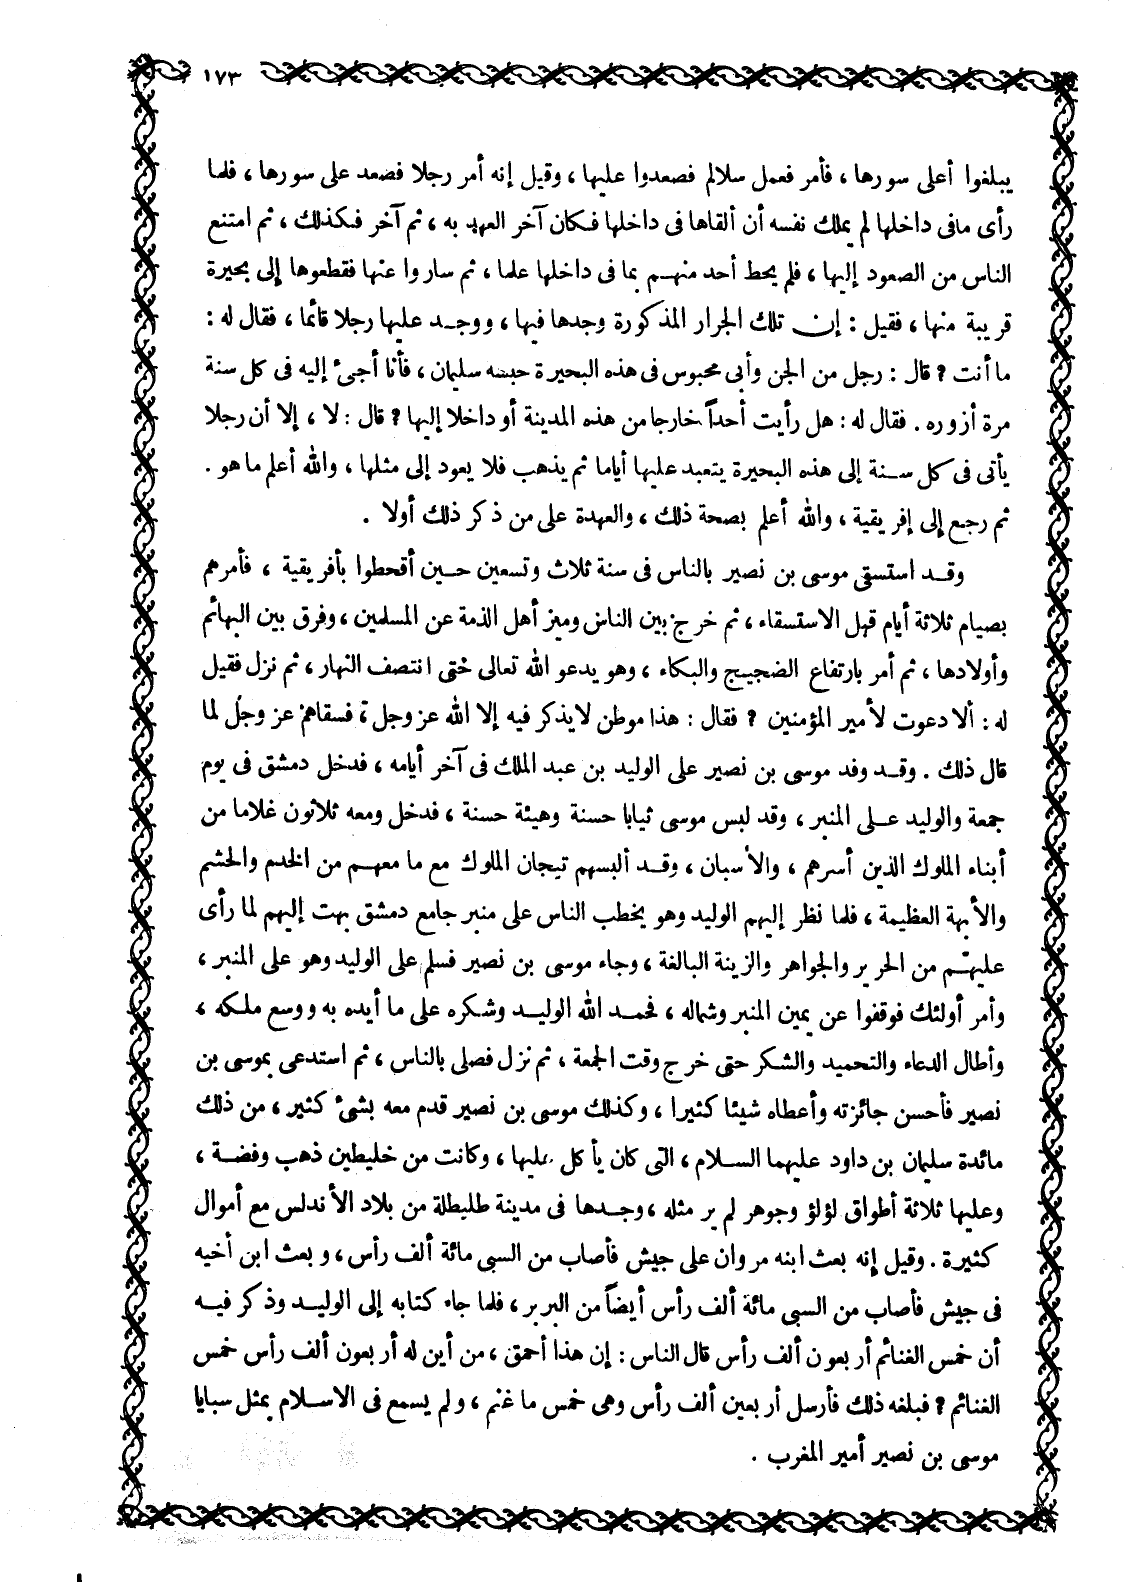 ١٧٣
يبلغوا أعلى سورها ، فأمر فعمل سلالم فصعدوا عليها ، وقيل إنه أمر رجلا فصعد على سورها ، فلما
رأى مافى داخلها لم يملك نفسه أن ألقاها فى داخلها فكان آخر العهد به ، ثم آخر فكذلك ، ثم امتنع
الناس من الصعود إليها ، فلم يحط أحد منهم بما فى داخلها علما ، ثم ساروا عنها فقطعوها إلى بحيرة
قريبة منها ، فقيل : إن تلك الجرار المذكورة وجدها فيها ، ووجد عليها رجلا قائما ، فقال له :
ما أنت ؟ قال : رجل من الجن وأبى محبوس فى هذه البحيرة حبسه سليمان ، فأنا أجئ إليه فى كل سنة
مرة أزوره . فقال له : هل رأيت أحداً خارجا من هذه المدينة أو داخلا إليها ؟ قال : لا ، إلا أن رجلا
يأتى فى كل سنة إلى هذه البحيرة يتعبد عليها أياما ثم يذهب فلا يعود إلى مثلها ، والله أعلم ما هو .
ثم رجع إلى إفريقية ، والله أعلم بصحة ذلك ، والعهدة على من ذكر ذلك أولا .
وقد استسقى موسى بن نصير بالناس فى سنة ثلاث وتسعين حين أقحطوا بأفريقية ، فأمرهم
بصيام ثلاثة أيام قبل الاستسقاء ، ثم خرج بين الناس وميز أهل الذمة عن المسلمين ، وفرق بين البهائم
وأولادها ، ثم أمر بارتفاع الضجيج والبكاء ، وهو يدعو الله تعالى حتى انتصف النهار ، ثم نزل فقيل
له : ألا دعوت لأمير المؤمنين ؟ فقال : هذا موطن لايذكر فيه إلا الله عز وجل ، فسقاهم عز وجل لما
قال ذلك . وقد وفد موسى بن نصير على الوليد بن عبد الملك فى آخر أيامه ، فدخل دمشق فى يوم
جمعة والوليد على المنبر ، وقد لبس موسى ثيابا حسنة وهيئة حسنة ، فدخل ومعه ثلاثون غلاما من
أبناء الملوك الذين أسرهم ، والأسبان ، وقد ألبسهم تيجان الملوك مع ما معهم من الخدم والحشم
والأبهة العظيمة ، فلما نظر إليهم الوليد وهو يخطب الناس على منبر جامع دمشق بهت إليهم لما رأى
عليهم من الحرير والجواهر والزينة البالغة ، وجاء موسى بن نصير فسلم على الوليد وهو على المنبر ،
وأمر أولئك فوقفوا عن يمين المنبر وشماله ، فحمد الله الوليد وشكره على ما أيده به ووسع ملكه ،
وأطال الدعاء والتحميد والشكر حتى خرج وقت الجمعة ، ثم نزل فصلى بالناس ، ثم استدعى بموسى بن
نصير فأحسن جائزته وأعطاه شيئا كثيرا ، وكذلك موسى بن نصير قدم معه بشئ كثير ، من ذلك
مائدة سليمان بن داود عليهما السلام ، التى كان يأكل عليها ، وكانت من خليطين ذهب وفضة ،
وعليها ثلاثة أطواق لؤلؤ وجوهر لم ير مثله ، وجدها فى مدينة طليطلة من بلاد الأندلس مع أموال
كثيرة . وقيل إنه بعث ابنه مروان على جيش فأصاب من السبى مائة ألف رأس ، وبعث ابن أخيه
فى جيش فأصاب من السبى مائة ألف رأس أيضاً من البربر ، فلما جاء كتابه إلى الوليد وذكر فيه
أن خمس الغنائم أربعون ألف رأس قال الناس : إن هذا أحمق ، من أين له أربعون ألف رأس خمس
الغنائم ؟ فبلغه ذلك فأرسل أربعين ألف رأس وهى خمس ما غنم ، ولم يسمع فى الاسلام بمثل سبايا
موسى بن نصير أمير المغرب .